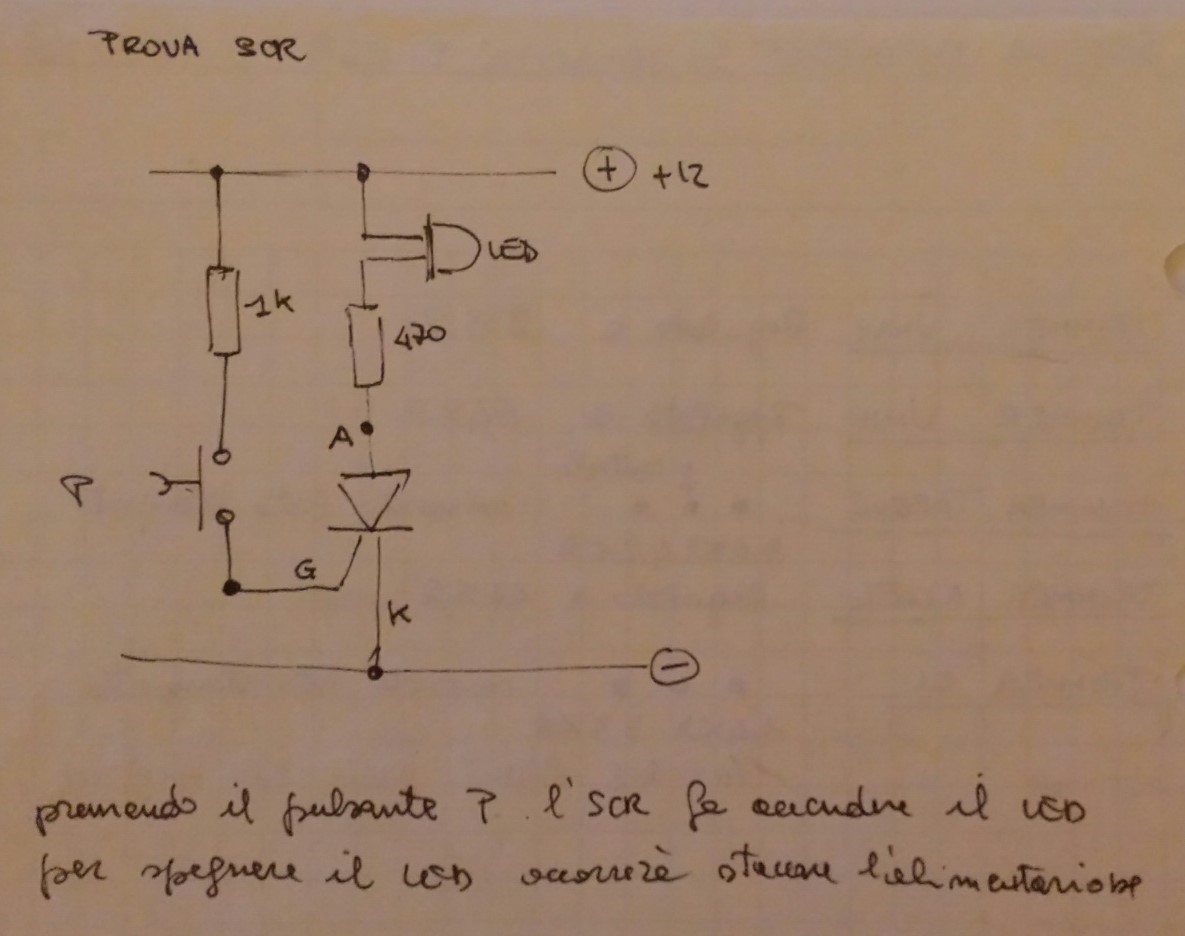 PROVA SCR
+ +12
LED
1k
470
A
P
G
K
-
premendo il pulsante P. l'SCR fa accendere il LED
per spegnere il LED occorrerà staccare l'alimentazione